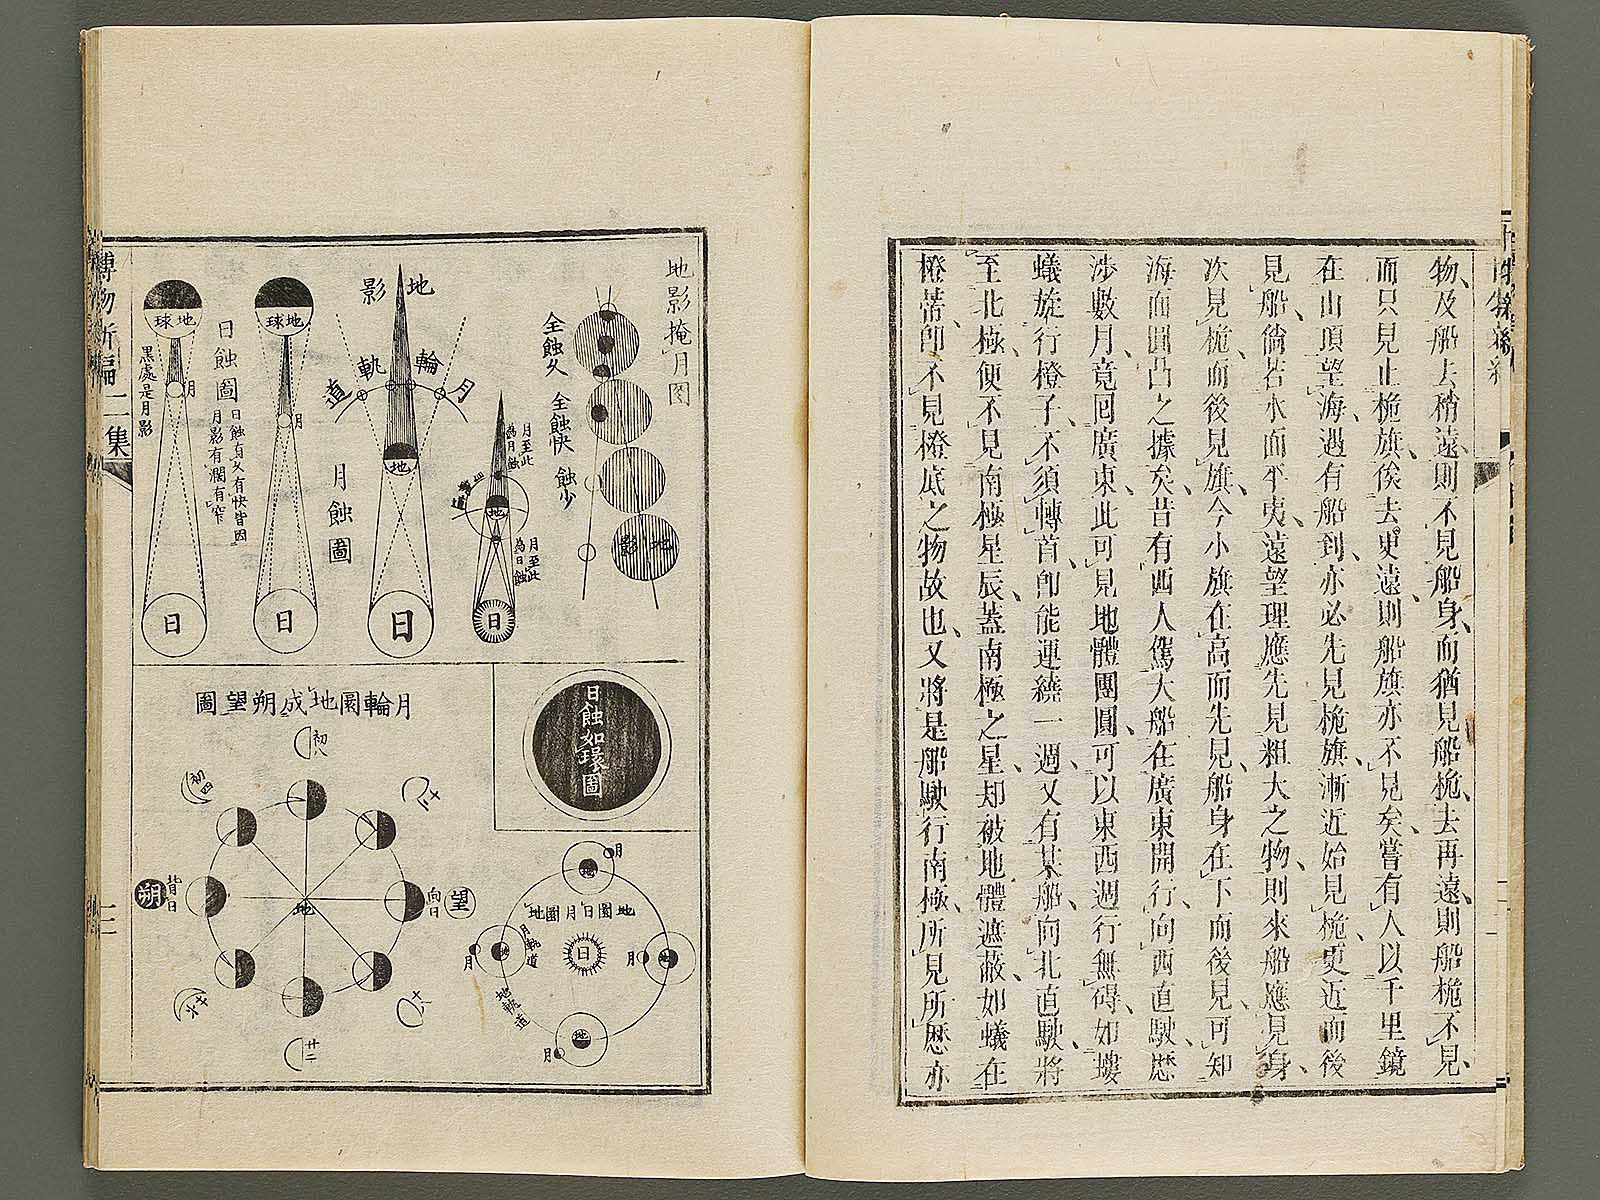 物及船去稍遠則不見船身而猶見船桅去再遠則船桅不見
而只見止桅旗俟去更遠則船旗亦不見矣嘗有人以千里鏡
在山頂望海遇有船到亦必先見桅旗漸近始見桅更近而後
見船倘若水面平夷遠望理應先見粗大之物則來船應見身
次見桅而後見旗今小旗在高而先見船身在下而後見可知
海面圓凸之據矣昔有西人駕大船在廣東開行向西直駛歷
涉數月竟回廣東此可見地體團圓可以東西週行無碍如螻
蟻旋行橙子不須轉首即能運繞一週又有某船向北直駛將
至北極便不見南極星辰蓋南極之星却被地體遮蔽如蟻在
橙蒂即不見橙底之物故也又將是船駛行南極所見所歷亦
地影掩月图
全蝕久
全蝕快
蝕少
地影
地影
月輪軌道
地
日
月蝕圖
月至此為月蝕
地
月至此為日蝕
日
地球
月
日
日蝕圖
日蝕有久有快皆因
月影有濶有窄
地球
月
黑處是月影
日
日蝕如環圖
月輪圜地成朔望圖
初八
初四
十二
朔
背日
地
向日
望
廿二
地圜日月圜地
日
月
地
月
地
月
地
月
地
月軌道
地軌道
博物新編二集
三